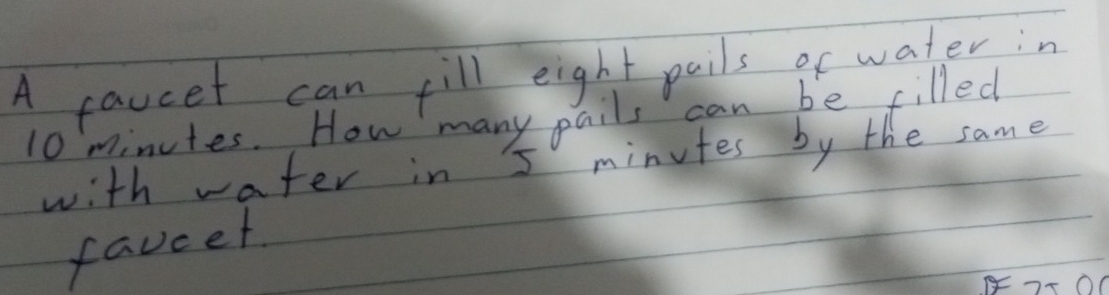 A faucet can fill eight pails of water in
10 minutes. How many pails can be filled
with water in 5 minutes by the same
faucet.